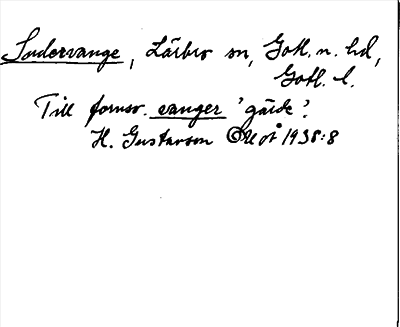 Sudervange, Lärbro sn, Gotl. n. hd,
Gotl. l.
Till fornsv. vanger 'gärde'.
H. Gustavson OUoÅ 1938:8